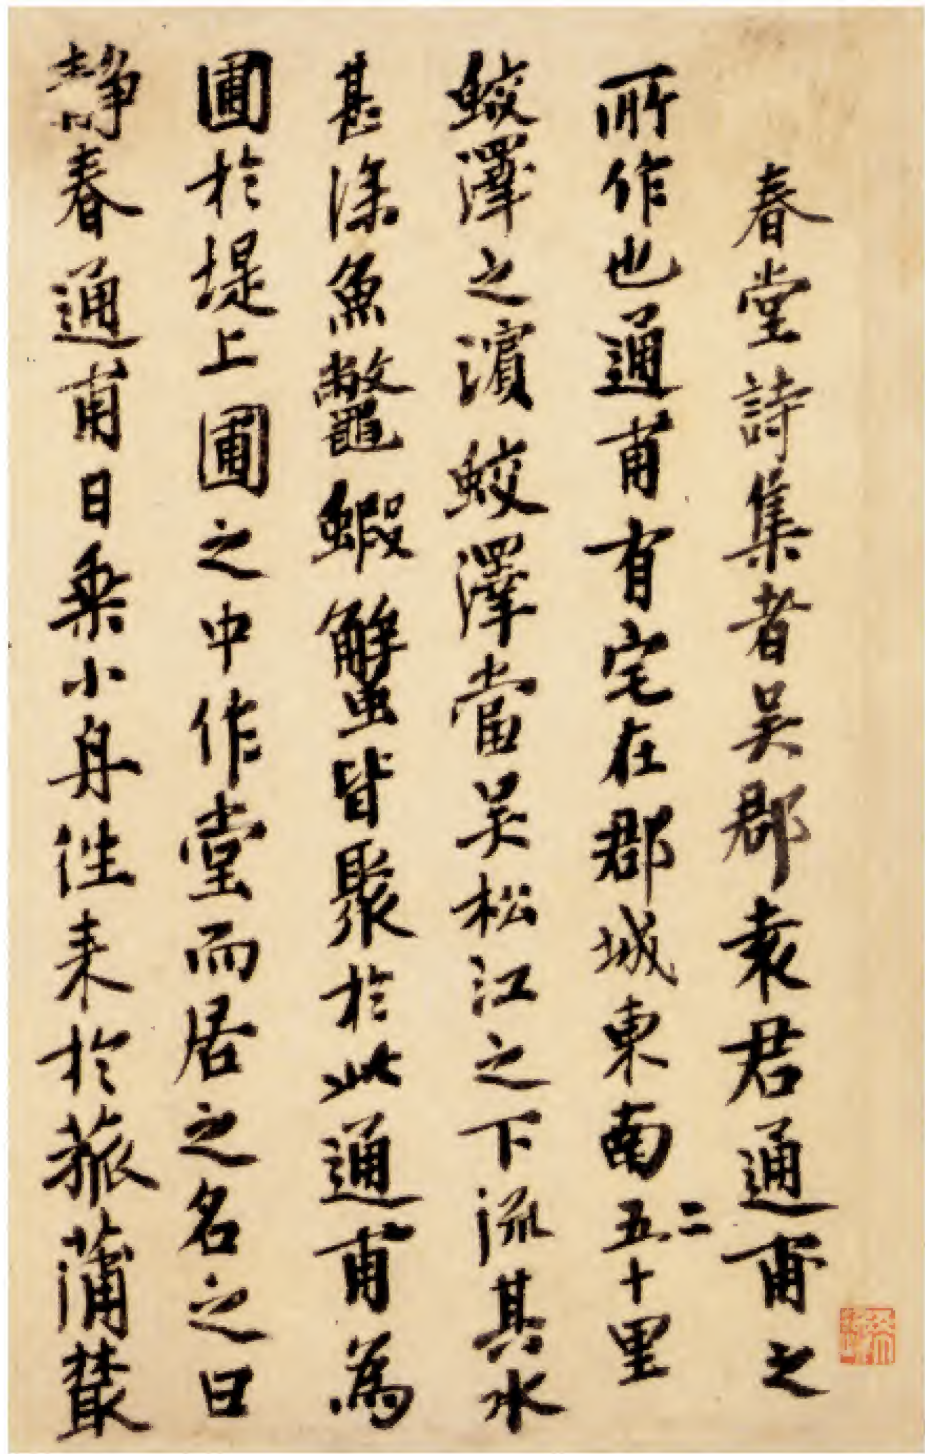 春堂詩集者吴郡袁君通甫之
所作也通甫有宅在郡城東南五十二里
鮫澤之濵鮫澤當吴松江之下流其水
甚深魚鼈蝦蟹皆聚於此通甫為
圃於堤上圃之中作堂而居之名之曰
静春通甫日乗小舟往来於菰蒲叢